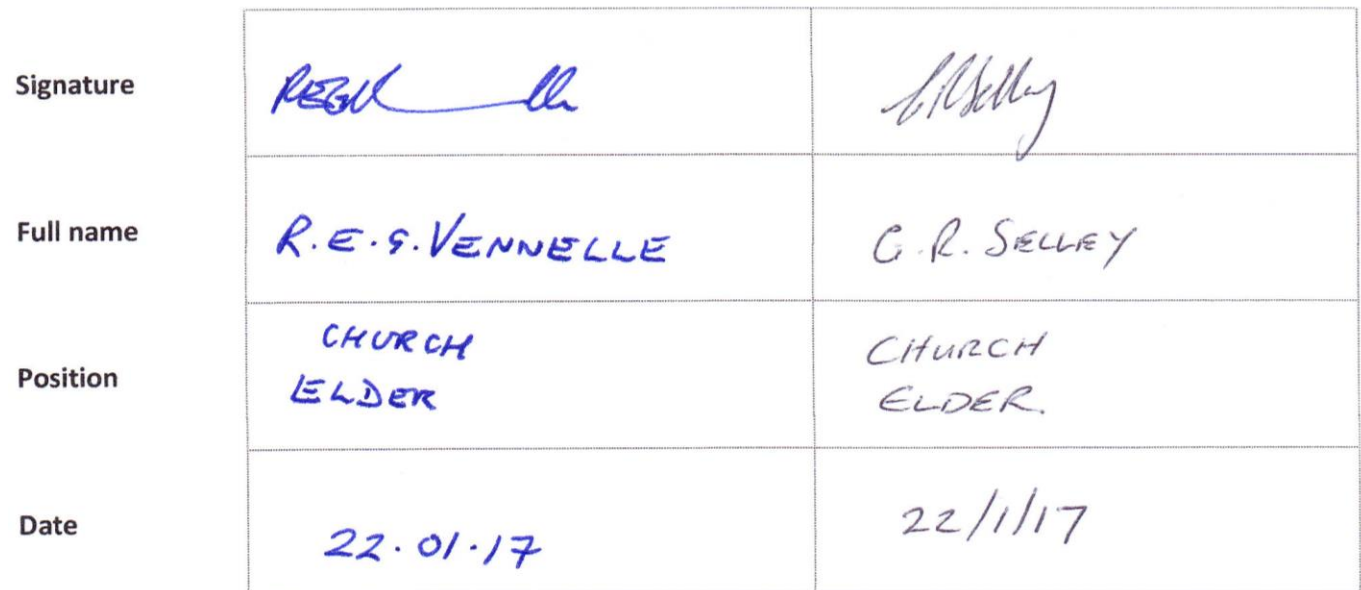 Signature
Full name R.E.G. VENNELLE G.R. SELLEY
Position CHURCH ELDER CHURCH ELDER.
Date 22.01.17 22/1/17